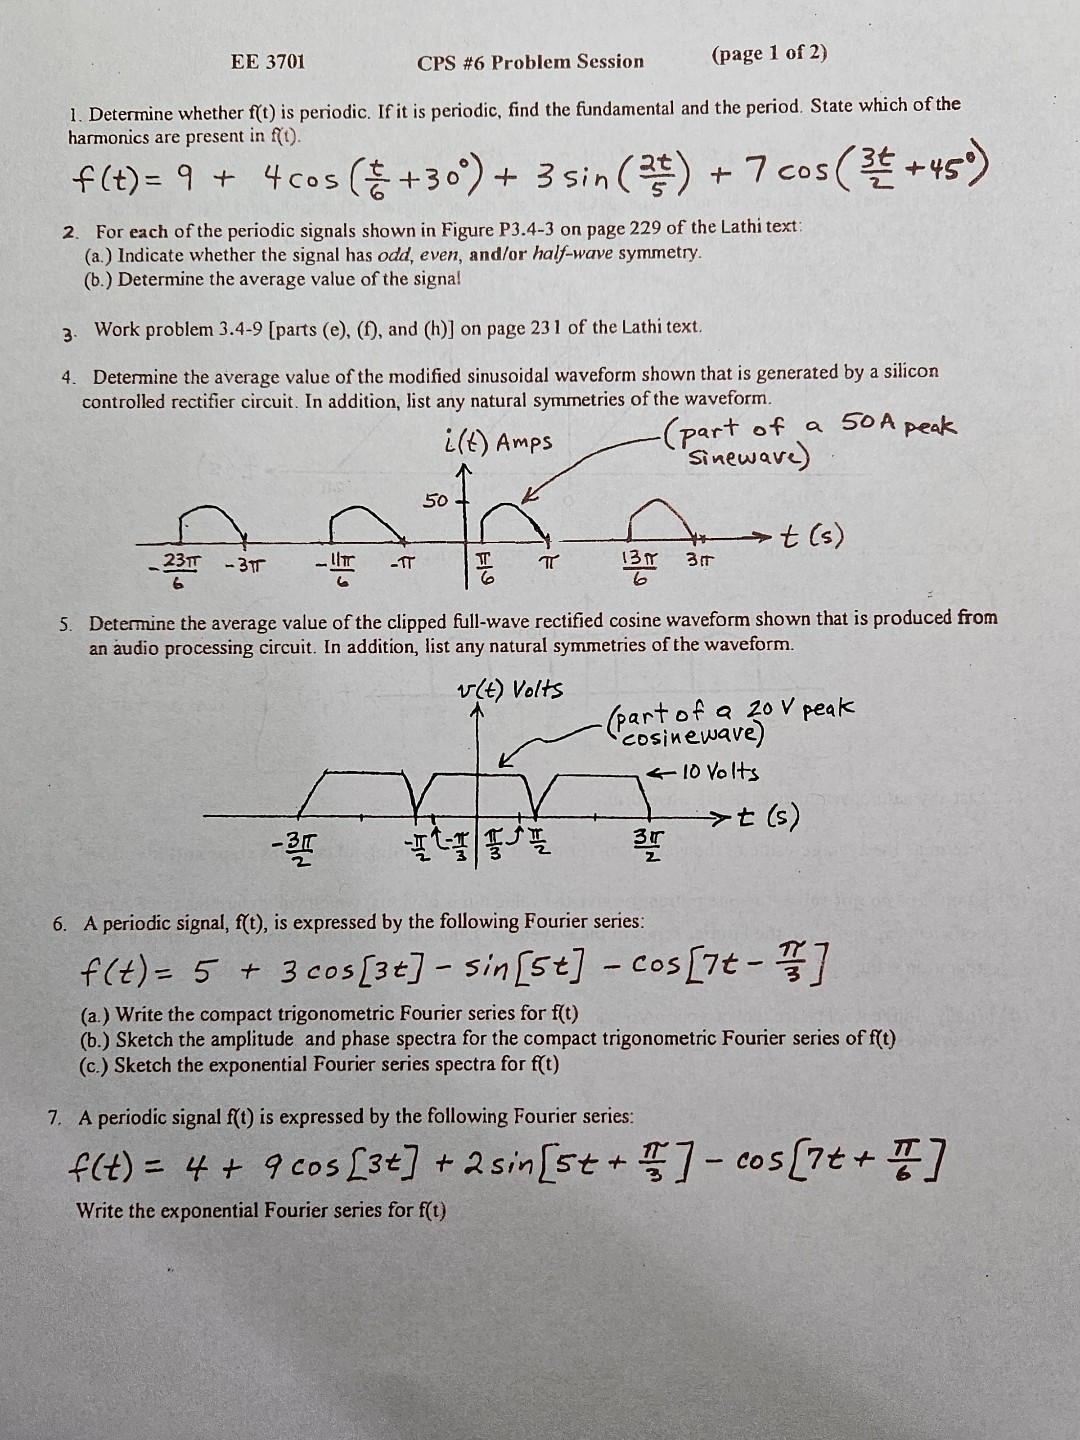 EE 3701 CPS #6 Problem Session (page 1 of 2)
1. Determine whether f(t) is periodic. If it is periodic, find the fundamental and the period. State which of the
harmonics are present in f(t).
f(t) = 9 + 4 cos (t/6 + 30°) + 3 sin (2t/5) + 7 cos (3t/2 + 45°)
2. For each of the periodic signals shown in Figure P3.4-3 on page 229 of the Lathi text:
(a.) Indicate whether the signal has odd, even, and/or half-wave symmetry.
(b.) Determine the average value of the signal
3. Work problem 3.4-9 [parts (e), (f), and (h)] on page 231 of the Lathi text.
4. Determine the average value of the modified sinusoidal waveform shown that is generated by a silicon
controlled rectifier circuit. In addition, list any natural symmetries of the waveform.
i(t) Amps (part of a 50A peak
sinewave)
50
t (s)
-23π/6 -3π -11π/6 -π π/6 π 13π/6 3π
5. Determine the average value of the clipped full-wave rectified cosine waveform shown that is produced from
an audio processing circuit. In addition, list any natural symmetries of the waveform.
v(t) Volts
(part of a 20 V peak
cosinewave)
← 10 Volts
t (s)
-3π/2 -π/2 -π/3 π/3 π/2 3π/2
6. A periodic signal, f(t), is expressed by the following Fourier series:
f(t) = 5 + 3 cos[3t] - sin[5t] - cos[7t - π/3]
(a.) Write the compact trigonometric Fourier series for f(t)
(b.) Sketch the amplitude and phase spectra for the compact trigonometric Fourier series of f(t)
(c.) Sketch the exponential Fourier series spectra for f(t)
7. A periodic signal f(t) is expressed by the following Fourier series:
f(t) = 4 + 9 cos[3t] + 2 sin[5t + π/3] - cos[7t + π/6]
Write the exponential Fourier series for f(t)